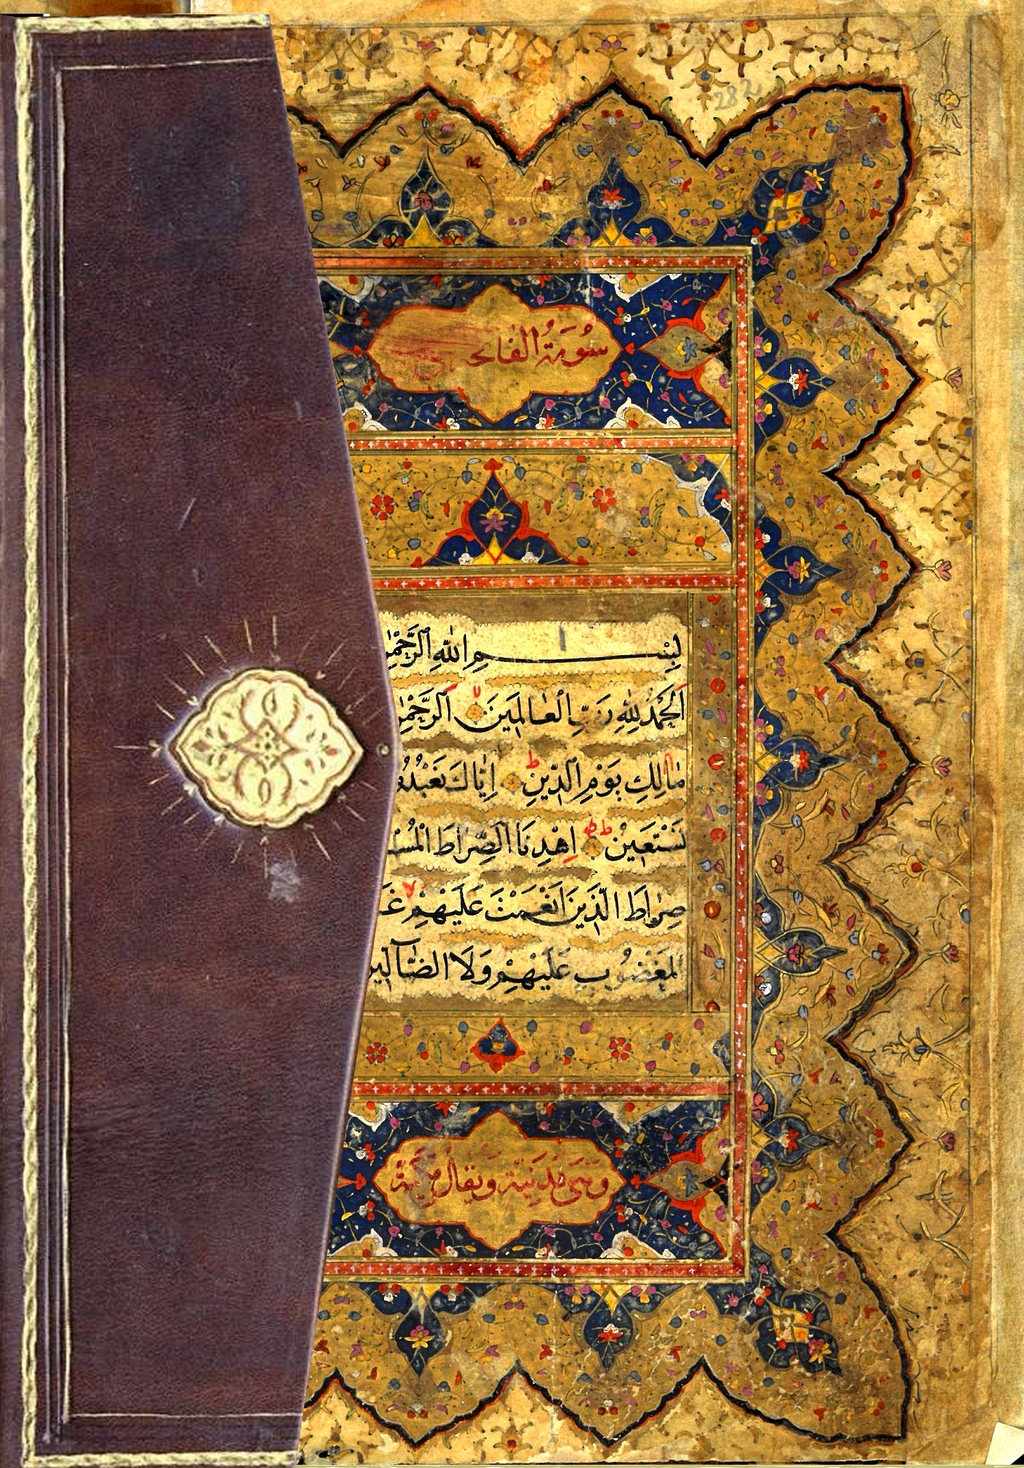 سُورَةُ الفاتحة
بِسْمِ اللهِ الرَّحْمٰنِ
اَلْحَمْدُ لِلّٰهِ رَبِّ الْعَالَمِينَ الرَّحْمٰنِ
مَالِكِ يَوْمِ الدِّينِ اِيَّاكَ نَعْبُدُ
نَسْتَعِينُ اِهْدِنَا الصِّرَاطَ الْمُسـ
صِرَاطَ الَّذِينَ اَنْعَمْتَ عَلَيْهِمْ غَـ
الْمَغْضُوبِ عَلَيْهِمْ وَلَا الضَّالِّينَ
وَهِىَ مَدَنِيَّة وَيُقَالُ مَكِّيَّة